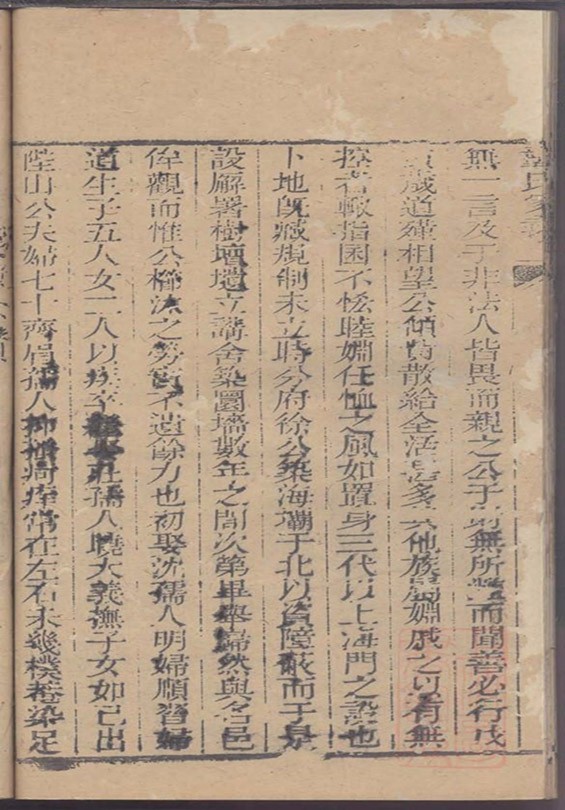 氏家乘
無一言及于非法人皆畏而親之公于財無所靳而聞善必行戊
歲道殣相望公傾貲散給全活甚多其他族屬婣戚之以有無
控者輒指囷不恡睦婣任恤之風如置身三代以上海門之設也
卜地旣臧規制未立時分府徐公築海壩于北以資障蔽而于是
設廨署樹壇壝立講舍築圜墻數年之間次第畢舉歸然與名邑
侔觀而惟公櫛沐之勞實不遺餘力也初娶沈孺人明婦順習婦
道生子五人女二人以疾卒莊孺人曉大義撫子女如己出
陞山公夫婦七十齊眉孺人抑搔疴癢常在左右未幾樸菴染足